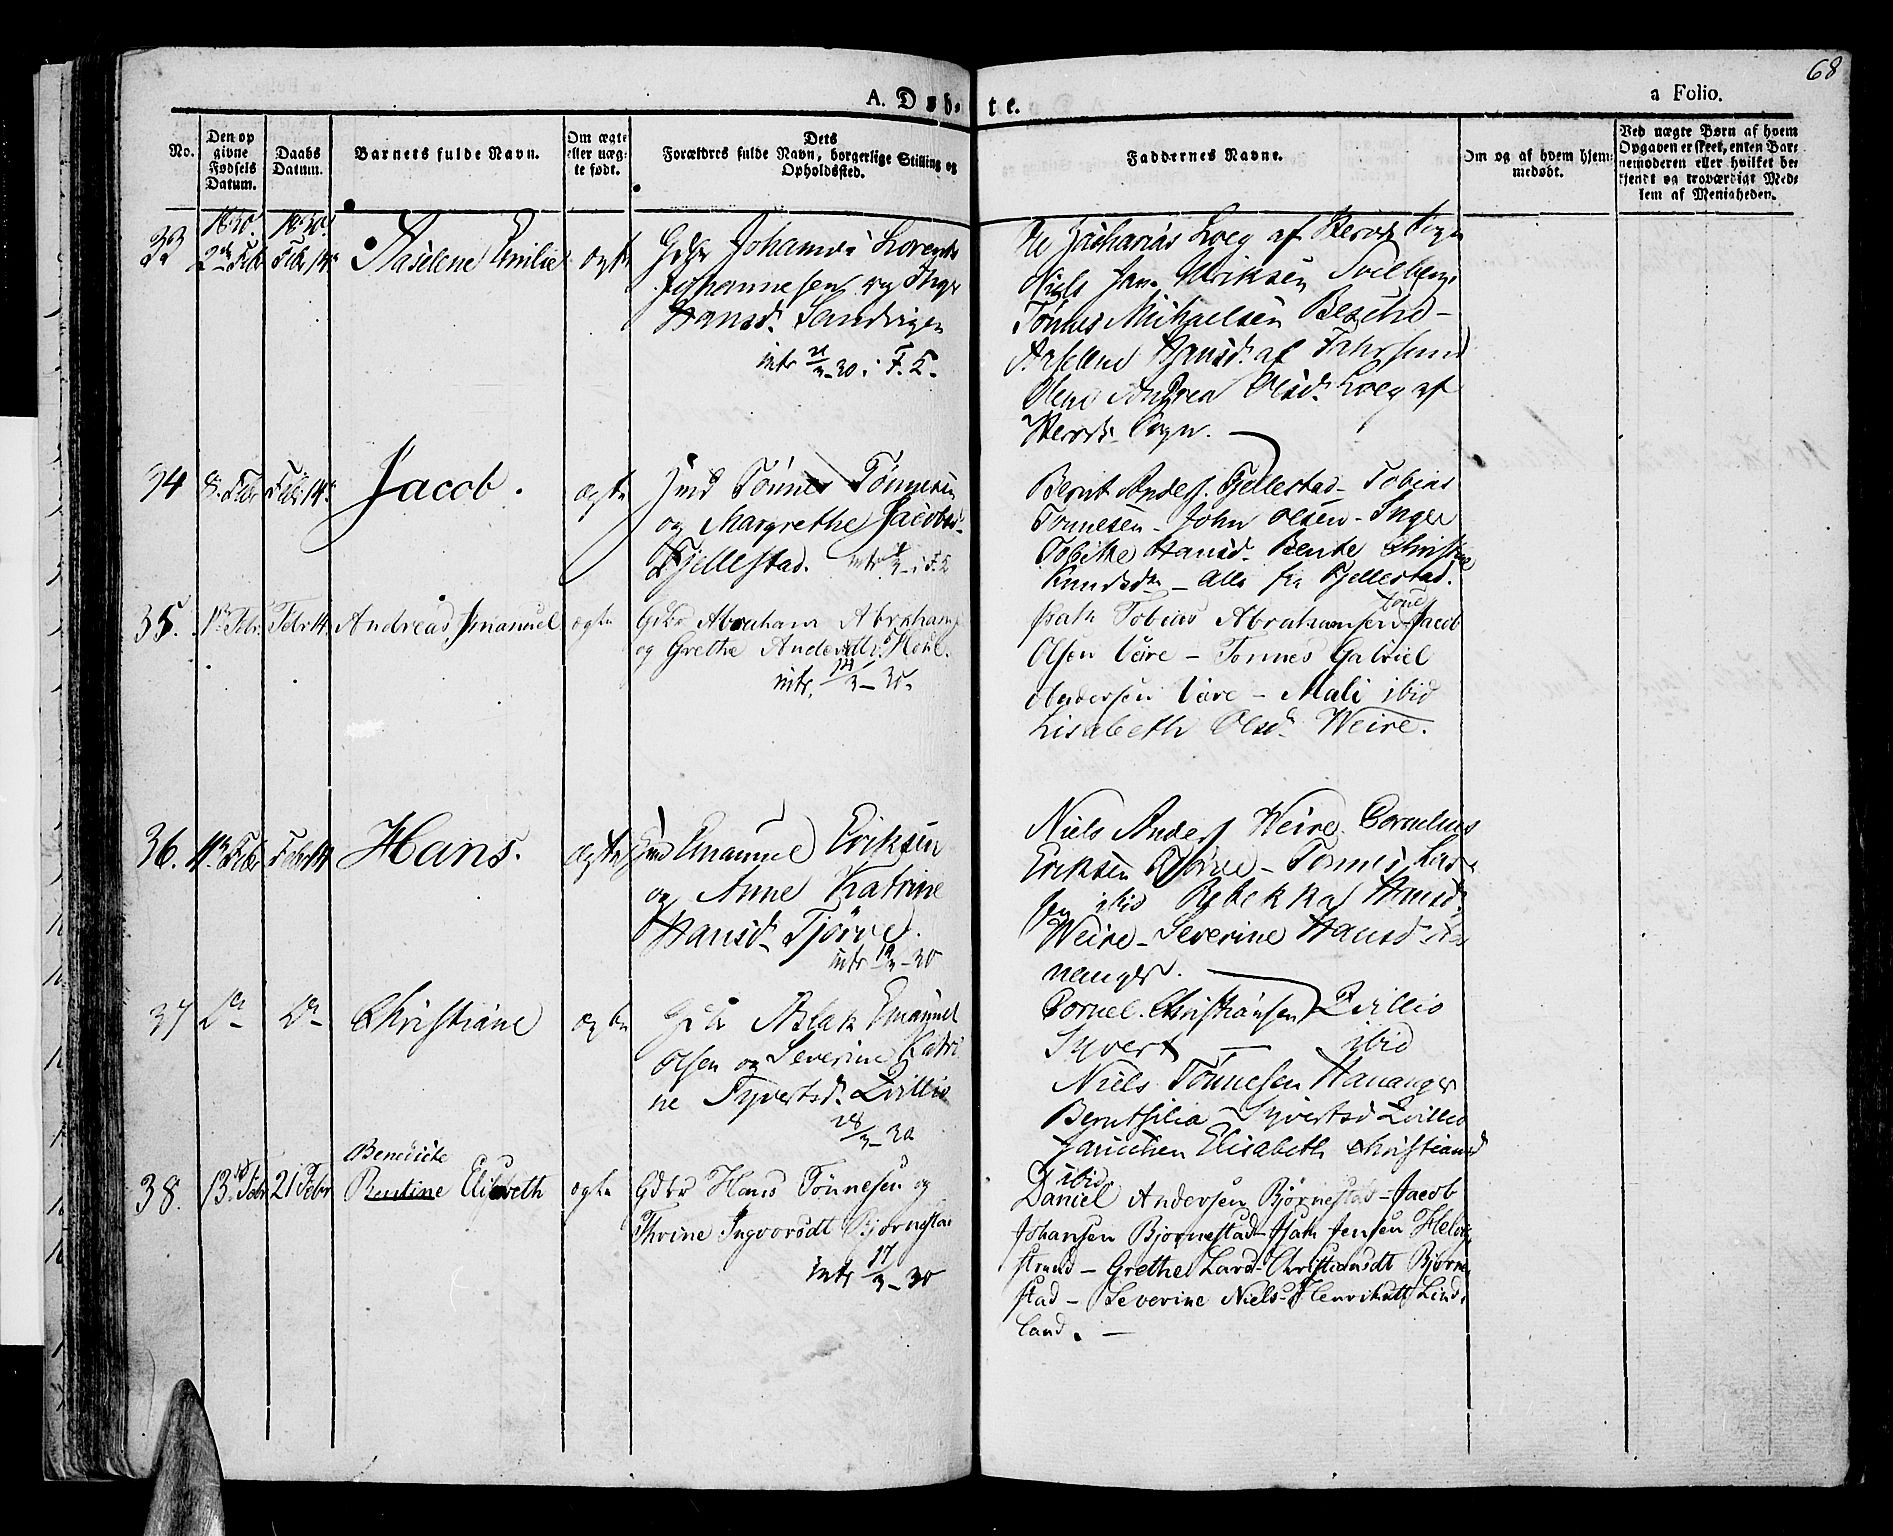 68
A. Døb- te.
a Folio.
No.
Den op
givne
Fødsels
Datum.
Daabs
Datum.
Barnets fulde Navn.
Om ægte
eller uæg-
te født.
Dets
Forældres fulde Navn, borgerlige Stilling og
Opholdssted.
Faddernes Navne.
Om og af hvem hjem-
medøbt.
Ved uægte Børn af hvem
Opgaven er skeet, enten Bar-
nemoderen eller hvilket be-
kjendt og troværdigt Med-
lem af Menigheden.
1830. 1830.
33 2 Feb Feb 14 Aaselene Emilie ægte Gdbr Johannes Lorents
Johannesen og Inger
Hansd. Sandvigen
intr 21/3-30 i F. K.
Zacharias Loeg af Herrds Sogn
Niels Jan Eriksen
Tønnes Michaelsen
Aaselene Hansd. af Fahrsund
Olene Andrea Olsd. Loeg af
Herrds Sogn.
34 8. Febr Febr 14 Jacob. ægte Ind Tønnes Tønnesen
og Margrethe Jacobsd.
Fjellestad. intr i F. K
Bernt Anders. Fjellestad - Tobias
Tønnesen - John Olsen - Inger
Tobine Hansd. Bente Christine
Knudsd. - alle fra Fjellestad.
35. 1 Febr. Febr 14 Andreas Emanuel ægte Gdbr Abraham Abrahams
og Grethe Andersdtr Houe.
intr. 14/3-30.
Isak Tobias Abrahamsen Houe Jacob
Olsen Vere - Tønnes Gabriel
Andersen Vere - Mali ibid
Lisabeth Olsd. Weire.
36. 11 Febr Febr 14 Hans. ægte Ind Emanuel Eriksen
og Anne Katrine
Hansd. Tjørve.
intr 19/3-30
Niels Anders. Weire. Cornelius
Eriksen Tjørve - Tønnes Lar-
sen ibid Rebekka Hansd.
Weire - Severine Hansd. Ha-
nanger.
37 Do Do Christiane ægte Gdbr Aslak Emanuel
Olsen og Severine Katri
ne Syvertsd. Qvillio
28/3-30
Cornel. Christiansen Qvillio
Syvert — ibid
Niels Tønnesen Hananger
Berntsilia Syvertsd Qvillio
Janichen Elisabeth Christiansd
ibid
Benedicte
38. 13 Febr 21 Febr Bentine Elisabeth ægte Gdbr Hans Tønnesen og
Thrine Ingvorsdt Bjørnestad
intr 17/3-30
Daniel Andersen Bjørnestad - Jacob
Johansen Bjørnestad - Isak Jensen Helvig
strand - Grethe Lars-Christiansdt Bjørne
stad - Severine Niels-Henriksdt Lind-
land. -